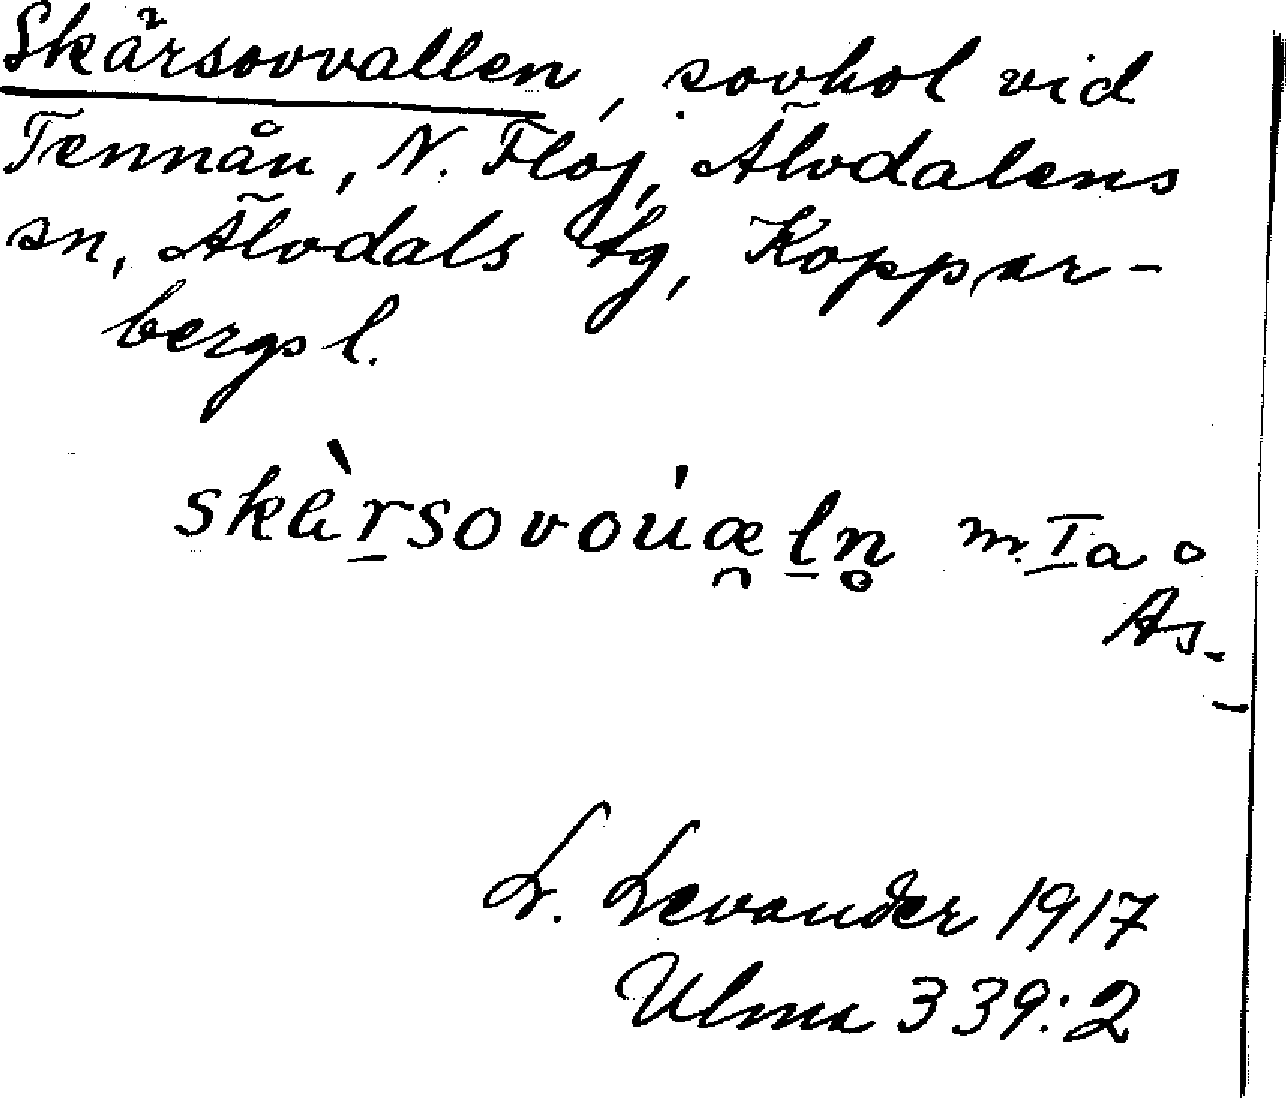 Skärsovvallen, sovhol vid
Tennån, N. Fløj, Älvdalens
sn, Älvdals tg, Koppar-
bergs l.
skàrsovoúæln m. Ia o
As.
L. Levander 1917
Ulma 339:2